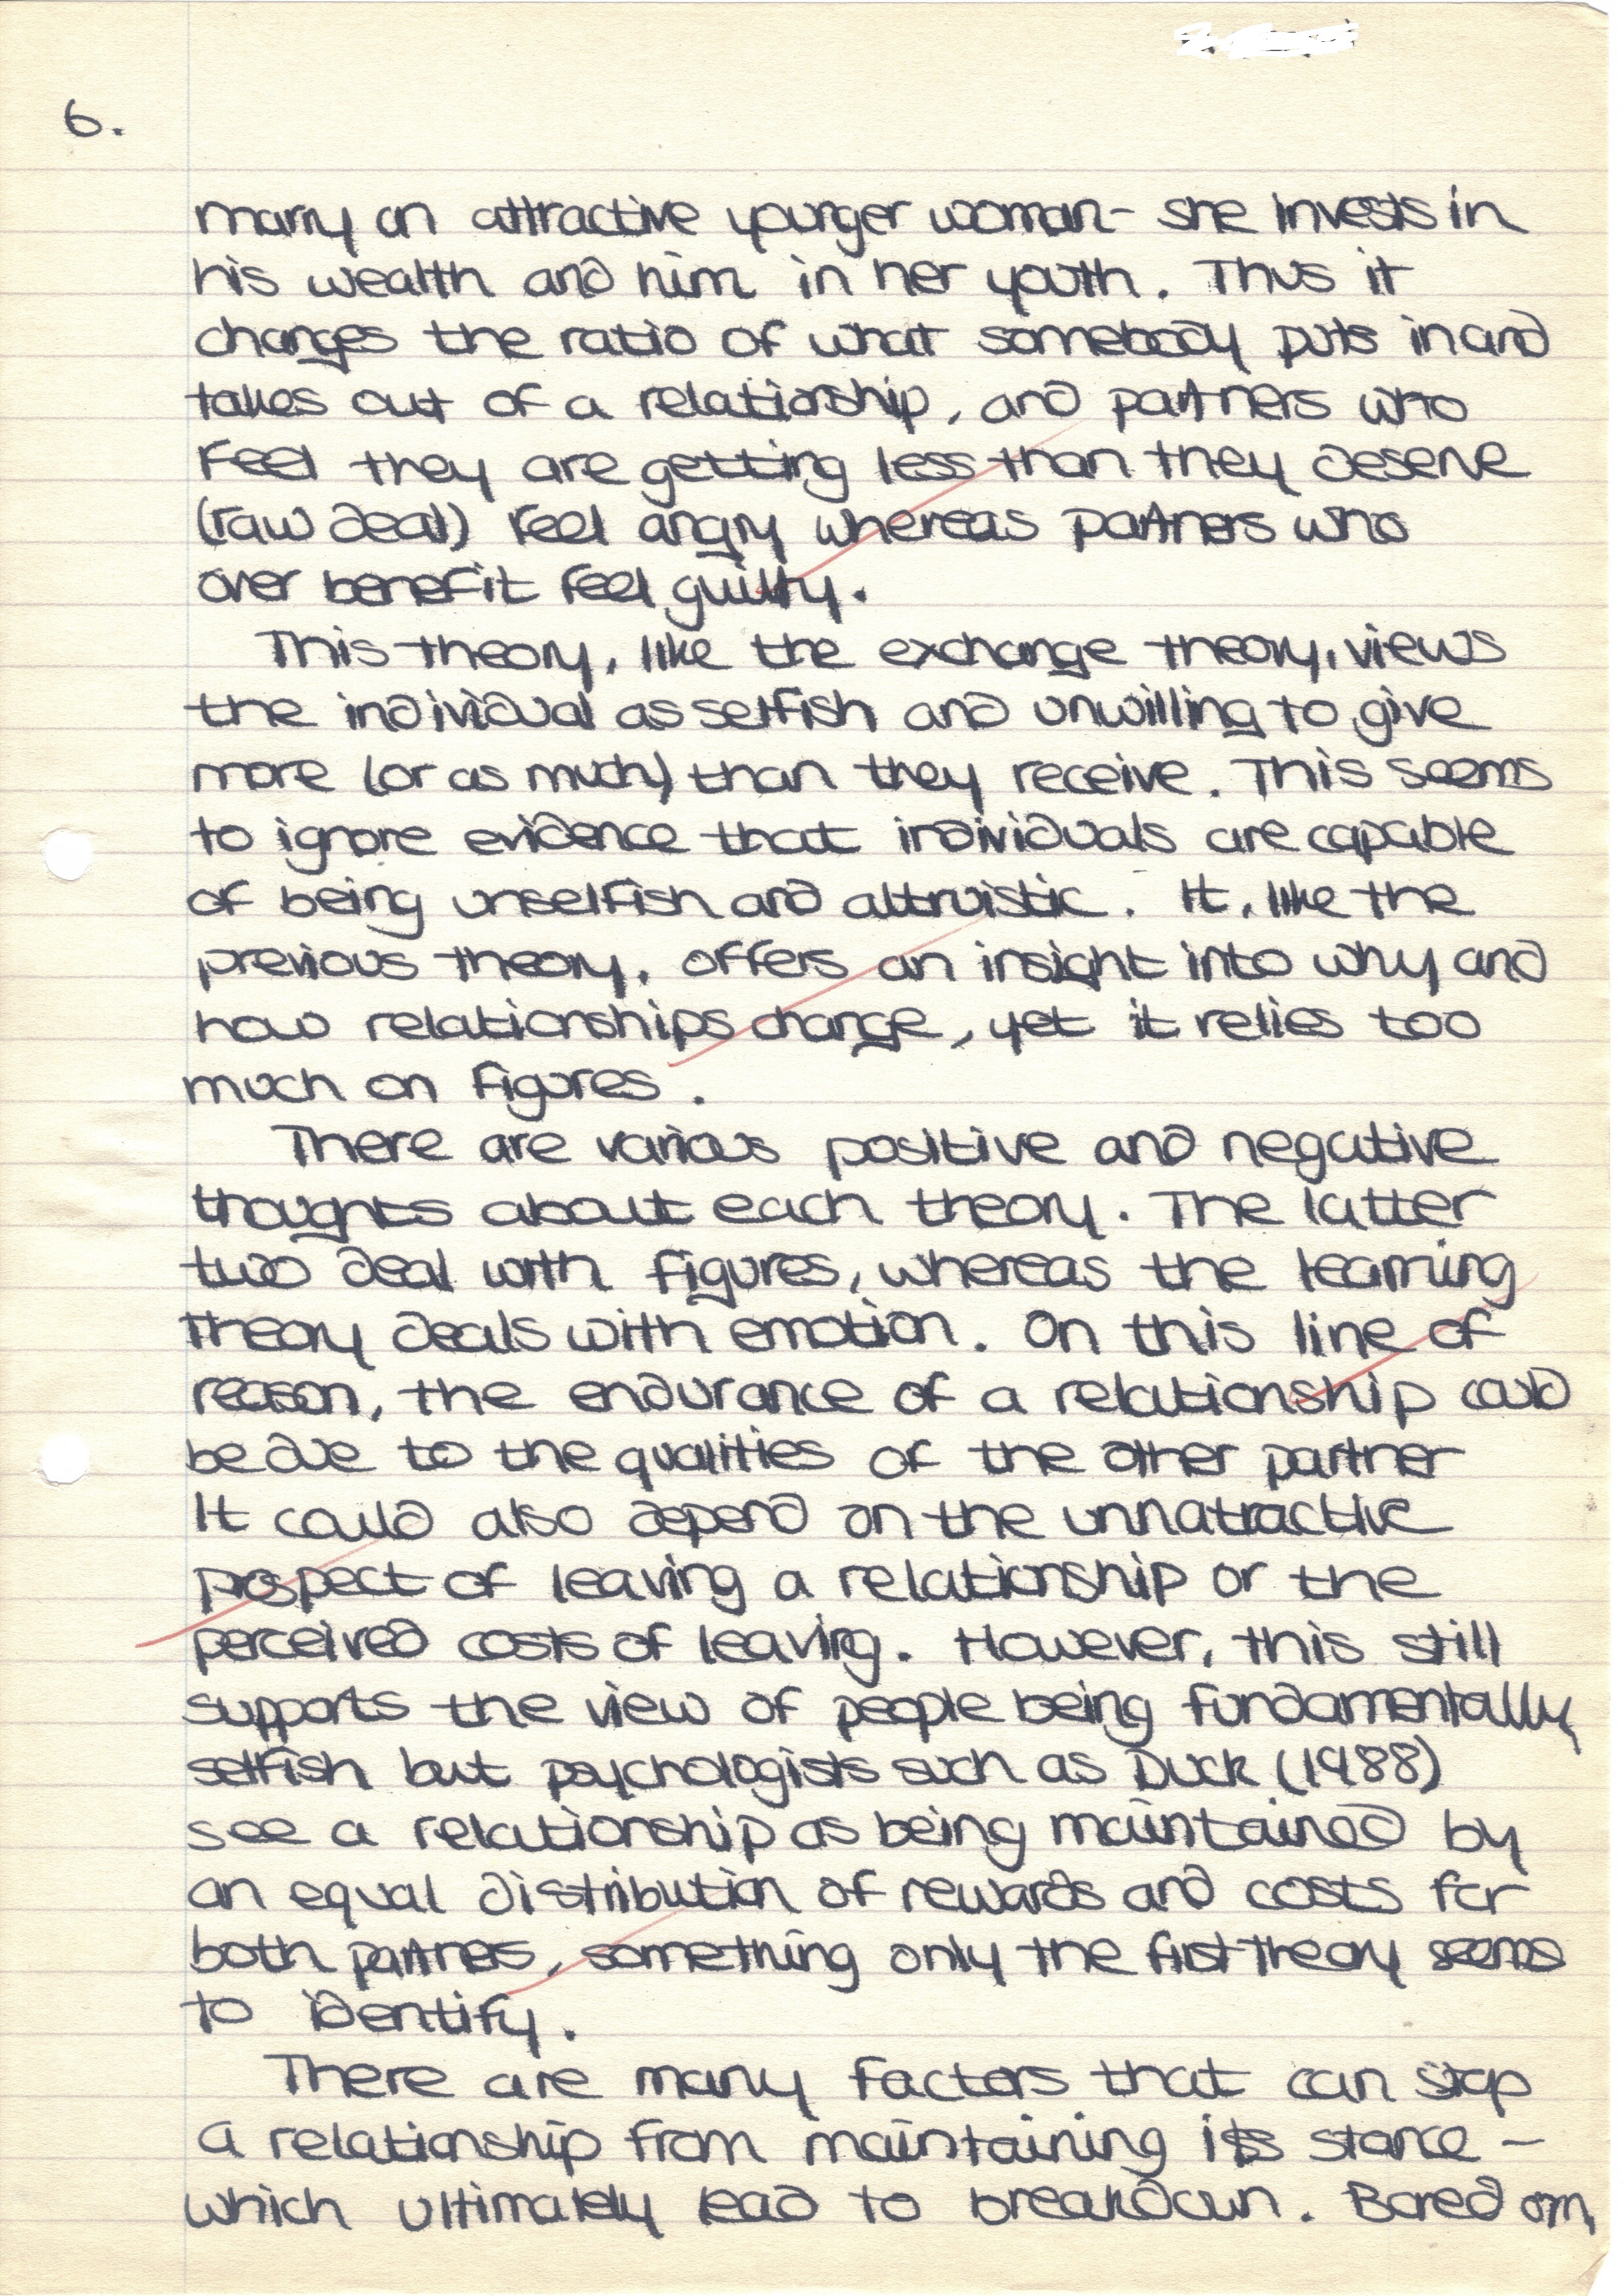 6.
marry an attractive younger woman - she invests in
his wealth and him in her youth. Thus it
changes the ratio of what somebody puts in and
takes out of a relationship, and partners who
feel they are getting less than they deserve
(raw deal) feel angry whereas partners who
over benefit feel guilty.
This theory, like the exchange theory, views
the individual as selfish and unwilling to give
more (or as much) than they receive. This seems
to ignore evidence that individuals are capable
of being unselfish and altruistic. It, like the
previous theory, offers an insight into why and
how relationships change, yet it relies too
much on figures.
There are various positive and negative
thoughts about each theory. The latter
two deal with figures, whereas the learning
theory deals with emotion. On this line of
reason, the endurance of a relationship could
be due to the qualities of the other partner
It could also depend on the unnatractive
prospect of leaving a relationship or the
perceived costs of leaving. However, this still
supports the view of people being fundamentally
selfish but psychologists such as Duck (1988)
see a relationship as being maintained by
an equal distribution of rewards and costs for
both partners, something only the first theory seems
to identify.
There are many factors that can stop
a relationship from maintaining its stance -
which ultimately lead to breakdown. Bored om